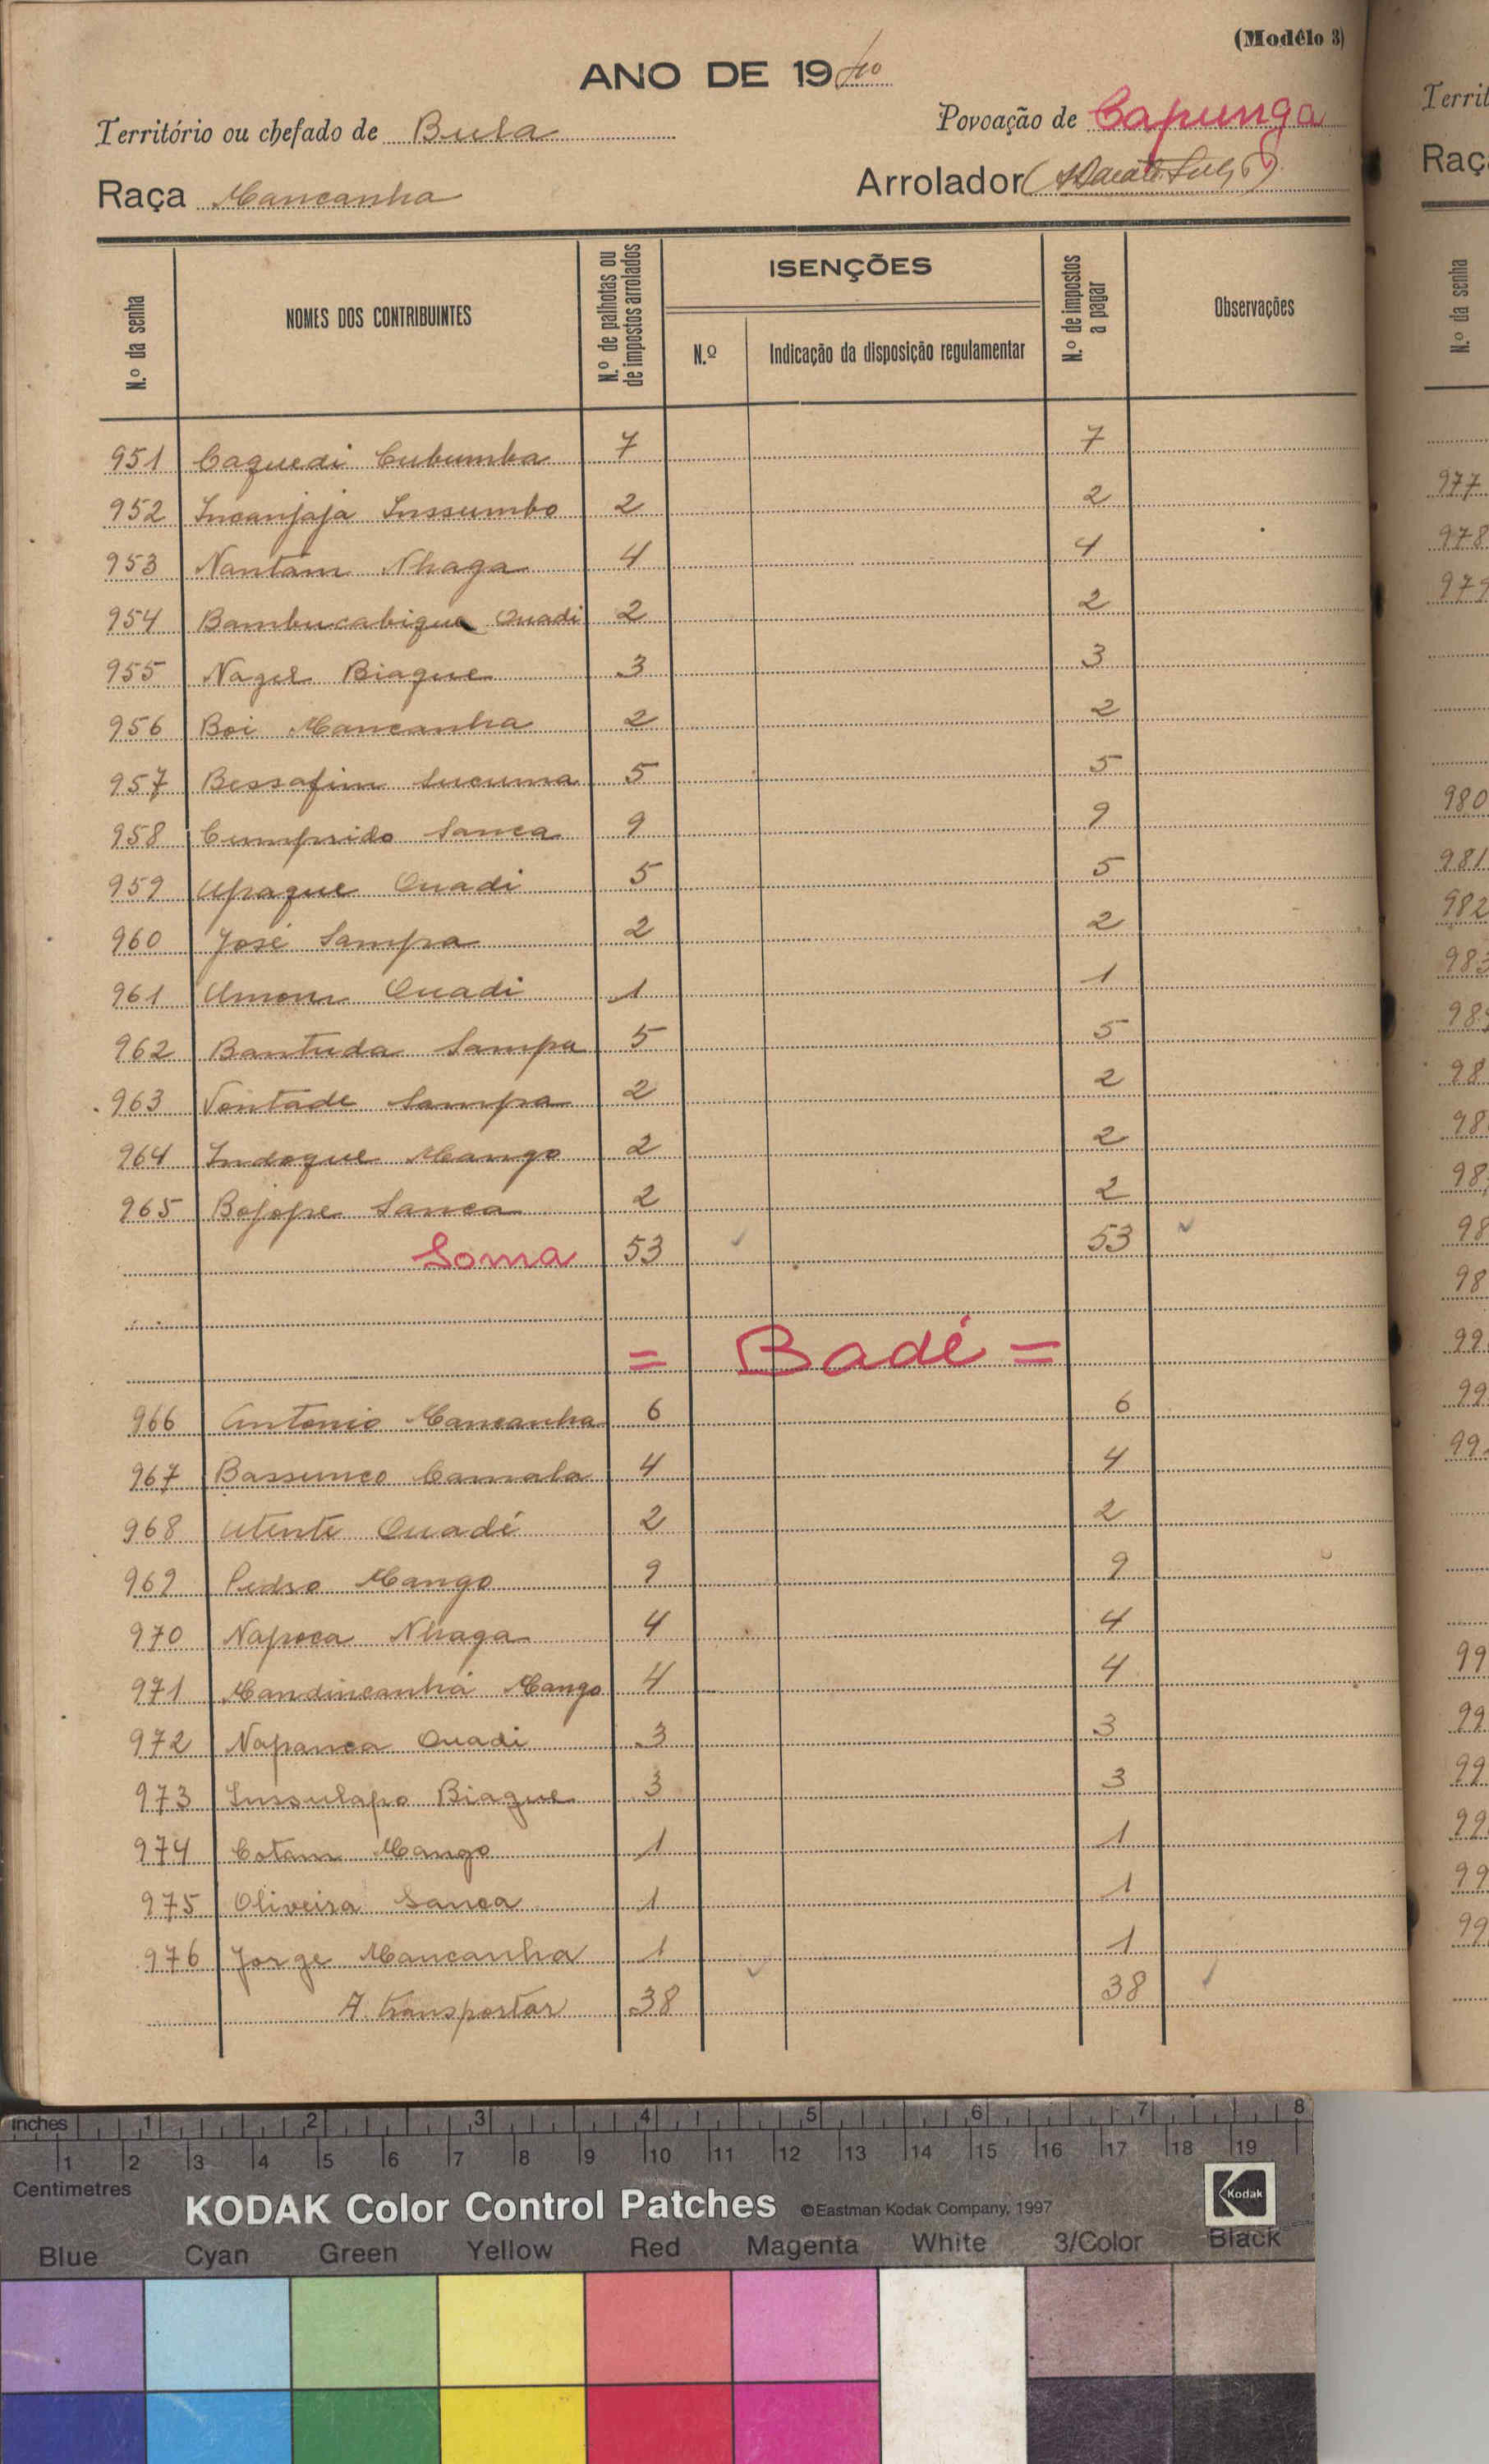 (Modêlo 3)
ANO DE 1940
Território ou chefado de Bula Povoação de Capunga
Raça Mancanha Arrolador
N.º da senha NOMES DOS CONTRIBUINTES N.º de palhotas ou de impostos arrolados ISENÇÕES N.º de impostos a pagar Observações
N.º Indicação da disposição regulamentar
951 Caguedi Cubumba 7 7
952 Incanjaja Inssumbo 2 2
953 Nantam Nhaga 4 4
954 Bambucabique Ouadi 2 2
955 Nagul Biague 3 3
956 Boi Mancanha 2 2
957 Bessafim Lucuma 5 5
958 Cumprido Sanca 9 9
959 Upaque Ouadi 5 5
960 José Sampa 2 2
961 Umom Ouadi 1 1
962 Bantuda Sampa 5 5
963 Vontade Sampa 2 2
964 Indoque Mango 2 2
965 Bojope Sanca 2 2
Soma 53 53
= Badé =
966 Antonio Mancanha 6 6
967 Bassunco Camala 4 4
968 Utente Ouadé 2 2
969 Pedro Mango 9 9
970 Napoca Nhaga 4 4
971 Mandincanha Mango 4 4
972 Napanca Ouadi 3 3
973 Inssulapo Biague 3 3
974 Cotam Mango 1 1
975 Oliveira Sanca 1 1
976 Jorge Mancanha 1 1
A transportar 38 38
Territ
Raç
N.º da senha
977
978
979
980
981
982
983
98
98
98
98
98
98
99
99
99
99
99
99
99
99
99
inches 1 2 3 4 5 6 7 8
1 2 3 4 5 6 7 8 9 10 11 12 13 14 15 16 17 18 19
Centimetres
KODAK Color Control Patches ©Eastman Kodak Company, 1997 Kodak
Blue Cyan Green Yellow Red Magenta White 3/Color Black